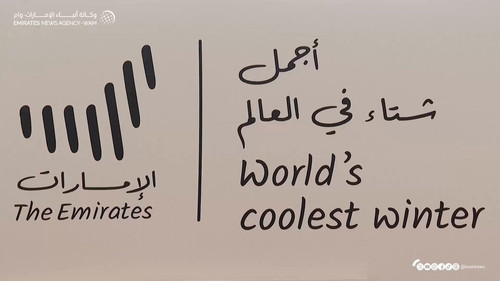 وكالة أنباء الإمارات-وام
EMIRATES NEWS AGENCY-WAM
الإمارات
The Emirates
أجمل
شتاء في العالم
World's
coolest winter